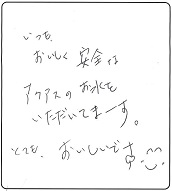 いつも、
おいしく 安全な
アクアスの お水を
いただいてまーす。
とても、おいしいです